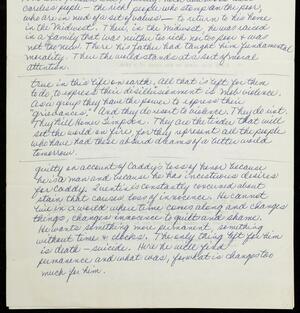 careless people - the rich people who stomp on the poor,
who are in need of a set of values - to return to his home
in the Midwest. There, in the Midwest, he was raised
in a family that was neither too rich nor too poor & was
not the new. There his father had taught him fundamental
morality. There the world stands at a set of moral
attention.
true in this life on earth, all that is left for them
to do, to repress their disillusionment is mob violence.
As a group they have the power to express their
"grievances," And they do want a violence. They do it.
They kill Homer Simpson. They are the ones that will
set the world on fire for they represent all the people
who have had these absurd dreams of a better world
tomorrow.
guilty on account of Caddy's loss of honor because
he is a man and because he has incestuous desires
for Caddy. Quentin is constantly concerned about
stain, that causes loss of innocence. He cannot
live in a world where time comes along and changes
things, changes innocence to guilt and shame.
He wants something more permanent, something
without time & clocks. The only thing left for him
is death - suicide. Here he will find
permanence and what was, for what is changes too
much for him.